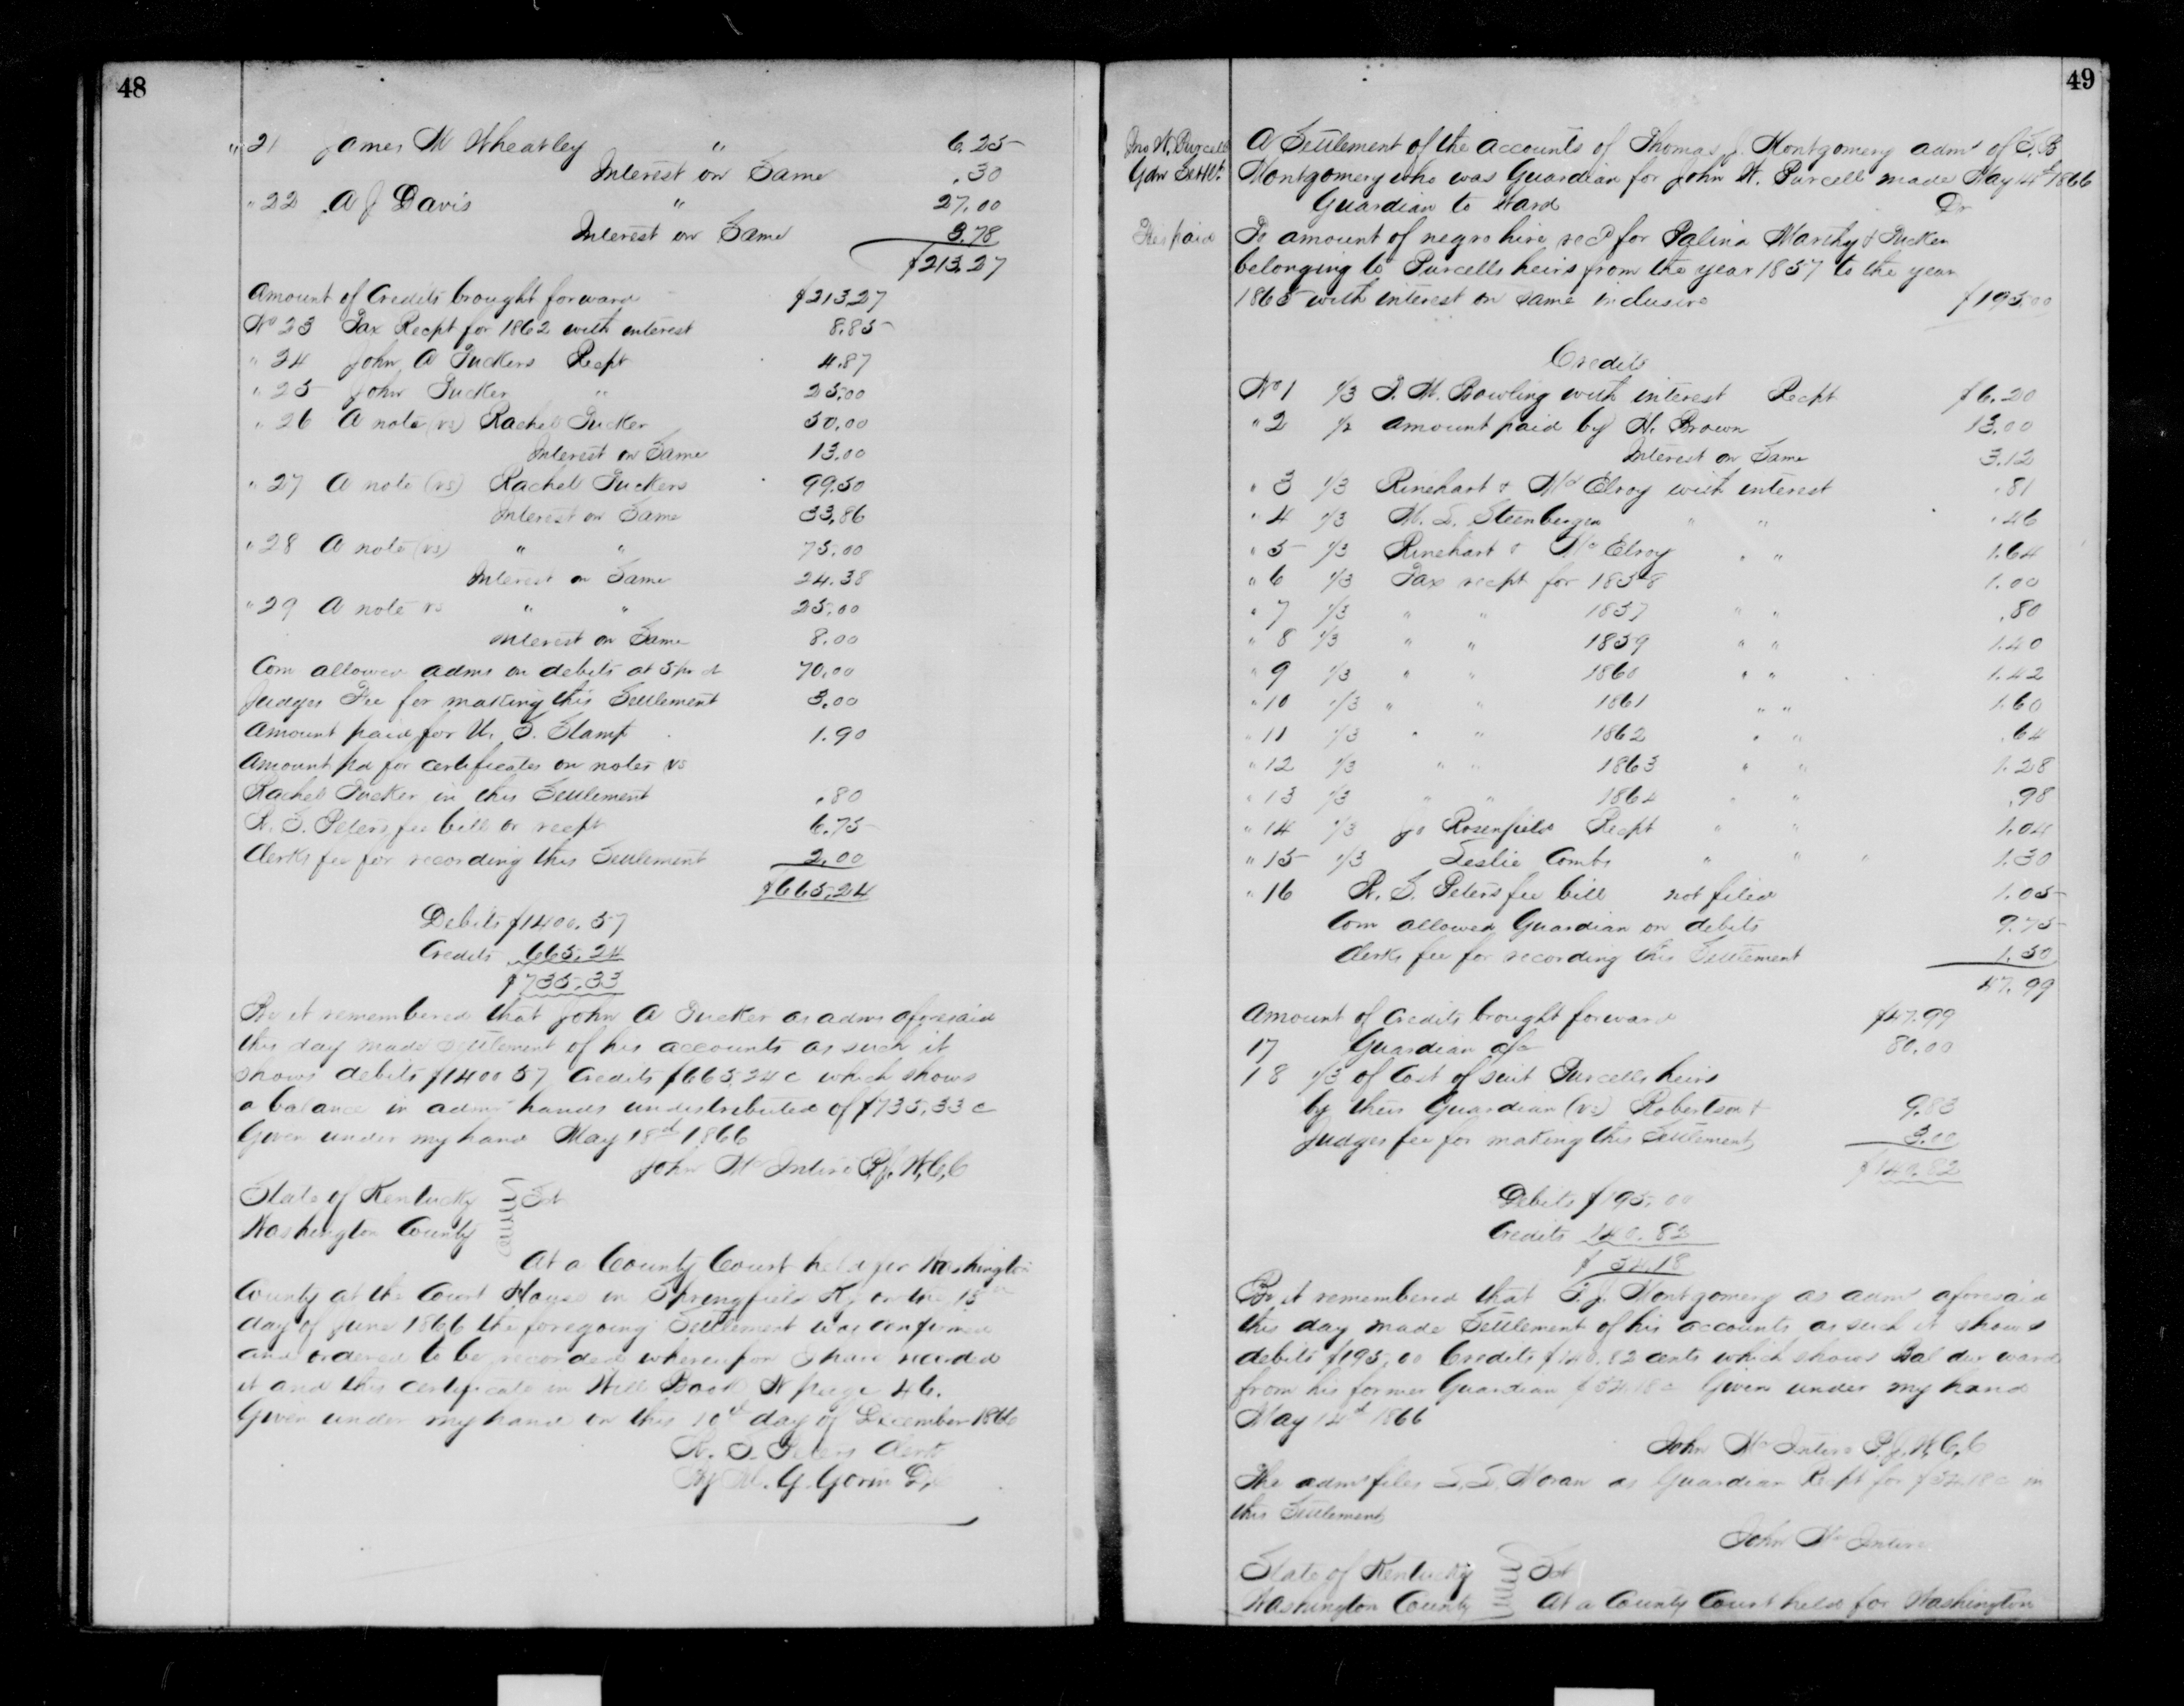 48
" 21 James M Wheatley " 6.25
Interest on Same .30
" 22 A J Davis " 27.00
Interest on Same 3.78
$213.27
Amount of Credits brought forward $213.27
No 23 Tax Recpt for 1862 with interest 8.85
" 24 John A Tuckers Recpt 4.87
" 25 John Tucker " 25.00
" 26 A note (vs) Rachel Tucker 50.00
Interest on Same 13.00
" 27 A note (vs) Rachel Tuckers 99.50
Interest on Same 33.86
" 28 A note (vs) " " 75.00
Interest on Same 24.38
" 29 A note vs " " 25.00
Interest on Same 8.00
Com allowed admr on debits at 5 pr ct 70.00
Judges Fee for making this Settlement 3.00
Amount paid for U. S. Stamp 1.90
Amount pd for certificates on notes vs
Rachel Tucker in this Settlement .80
W. S. Peters fee bill or recpt 6.75
Clerks fee for recording this Settlement 2.00
$665.24
Debits $1400.57
Credits 665.24
$735.33
Be it remembered that John A Tucker as admr aforesaid
this day made settlement of his accounts as such it
shows debits $1400 57 Credits $665.24 c which shows
a balance in admrs hands undistributed of $735.33 c
Given under my hand May 18th 1866
John McIntire P.J.W.C.C
State of Kentucky Sct
Washington County
At a County Court held for Washington
County at the Court House in Springfield Ky on the
day of June 1866 the foregoing Settlement was confirmed
and ordered to be recorded whereupon I have recorded
it and this certificate in Will Book N page 46.
Given under my hand on this 10th day of December 1866
W. S. Peters Clerk
By W. G. Gorin D.C
49
Jno W. Purcell
Gdn Settlt
A Settlement of the accounts of Thomas J. Montgomery admr of T. B
Montgomery who was Guardian for John W. Purcell made May 14th 1866
Guardian to Ward Dr
Fees paid
To amount of negro hire recd for Palina Marthy & Tucker
belonging to Purcells heirs from the year 1857 to the year
1865 with interest on same inclusive $195.00
Credits
No 1 1/3 J. M. Bowling with interest Recpt $6.20
" 2 1/2 amount paid by H. Brown 13.00
Interest on Same 3.12
" 3 1/3 Rinehart & McElroy with interest .81
" 4 1/3 W. S. Steenbergen " " .46
" 5 1/3 Rinehart & McElroy " " 1.64
" 6 1/3 Tax recpt for 1858 1.00
" 7 1/3 " " 1857 " " .80
" 8 1/3 " " 1859 " " 1.40
" 9 1/3 " " 1860 " " 1.42
" 10 1/3 " " 1861 " " 1.60
" 11 1/3 " " 1862 " " .64
" 12 1/3 " " 1863 " " 1.28
" 13 1/3 " " 1864 " " .98
" 14 1/3 Jo Rosenfield Recpt " " 1.04
" 15 1/3 Leslie Combs " " " 1.30
" 16 W. S. Peters fee bill not filed 1.05
Com allowed Guardian on debits 9.75
Clerks fee for recording this Settlement 1.50
47.99
Amount of Credits brought forward $47.99
17 Guardian a/c 80.00
18 1/3 of Cost of suit Purcells heirs
by their Guardian (vs) Robertson & 9.83
Judges fee for making this Settlement 3.00
$140.82
Debits $195.00
Credits 140.82
$54.18
Be it remembered that T. J. Montgomery as admr aforesaid
this day made Settlement of his accounts as such it shows
debits $195.00 Credits $140.82 cents which shows Bal due ward
from his former Guardian $54.18 c Given under my hand
May 14th 1866
John McIntire P.J.W.C.C
The admr files S. S. Moran as Guardian Recpt for $54.18 c in
this Settlement
John McIntire
State of Kentucky Sct
Washington County At a County Court held for Washington